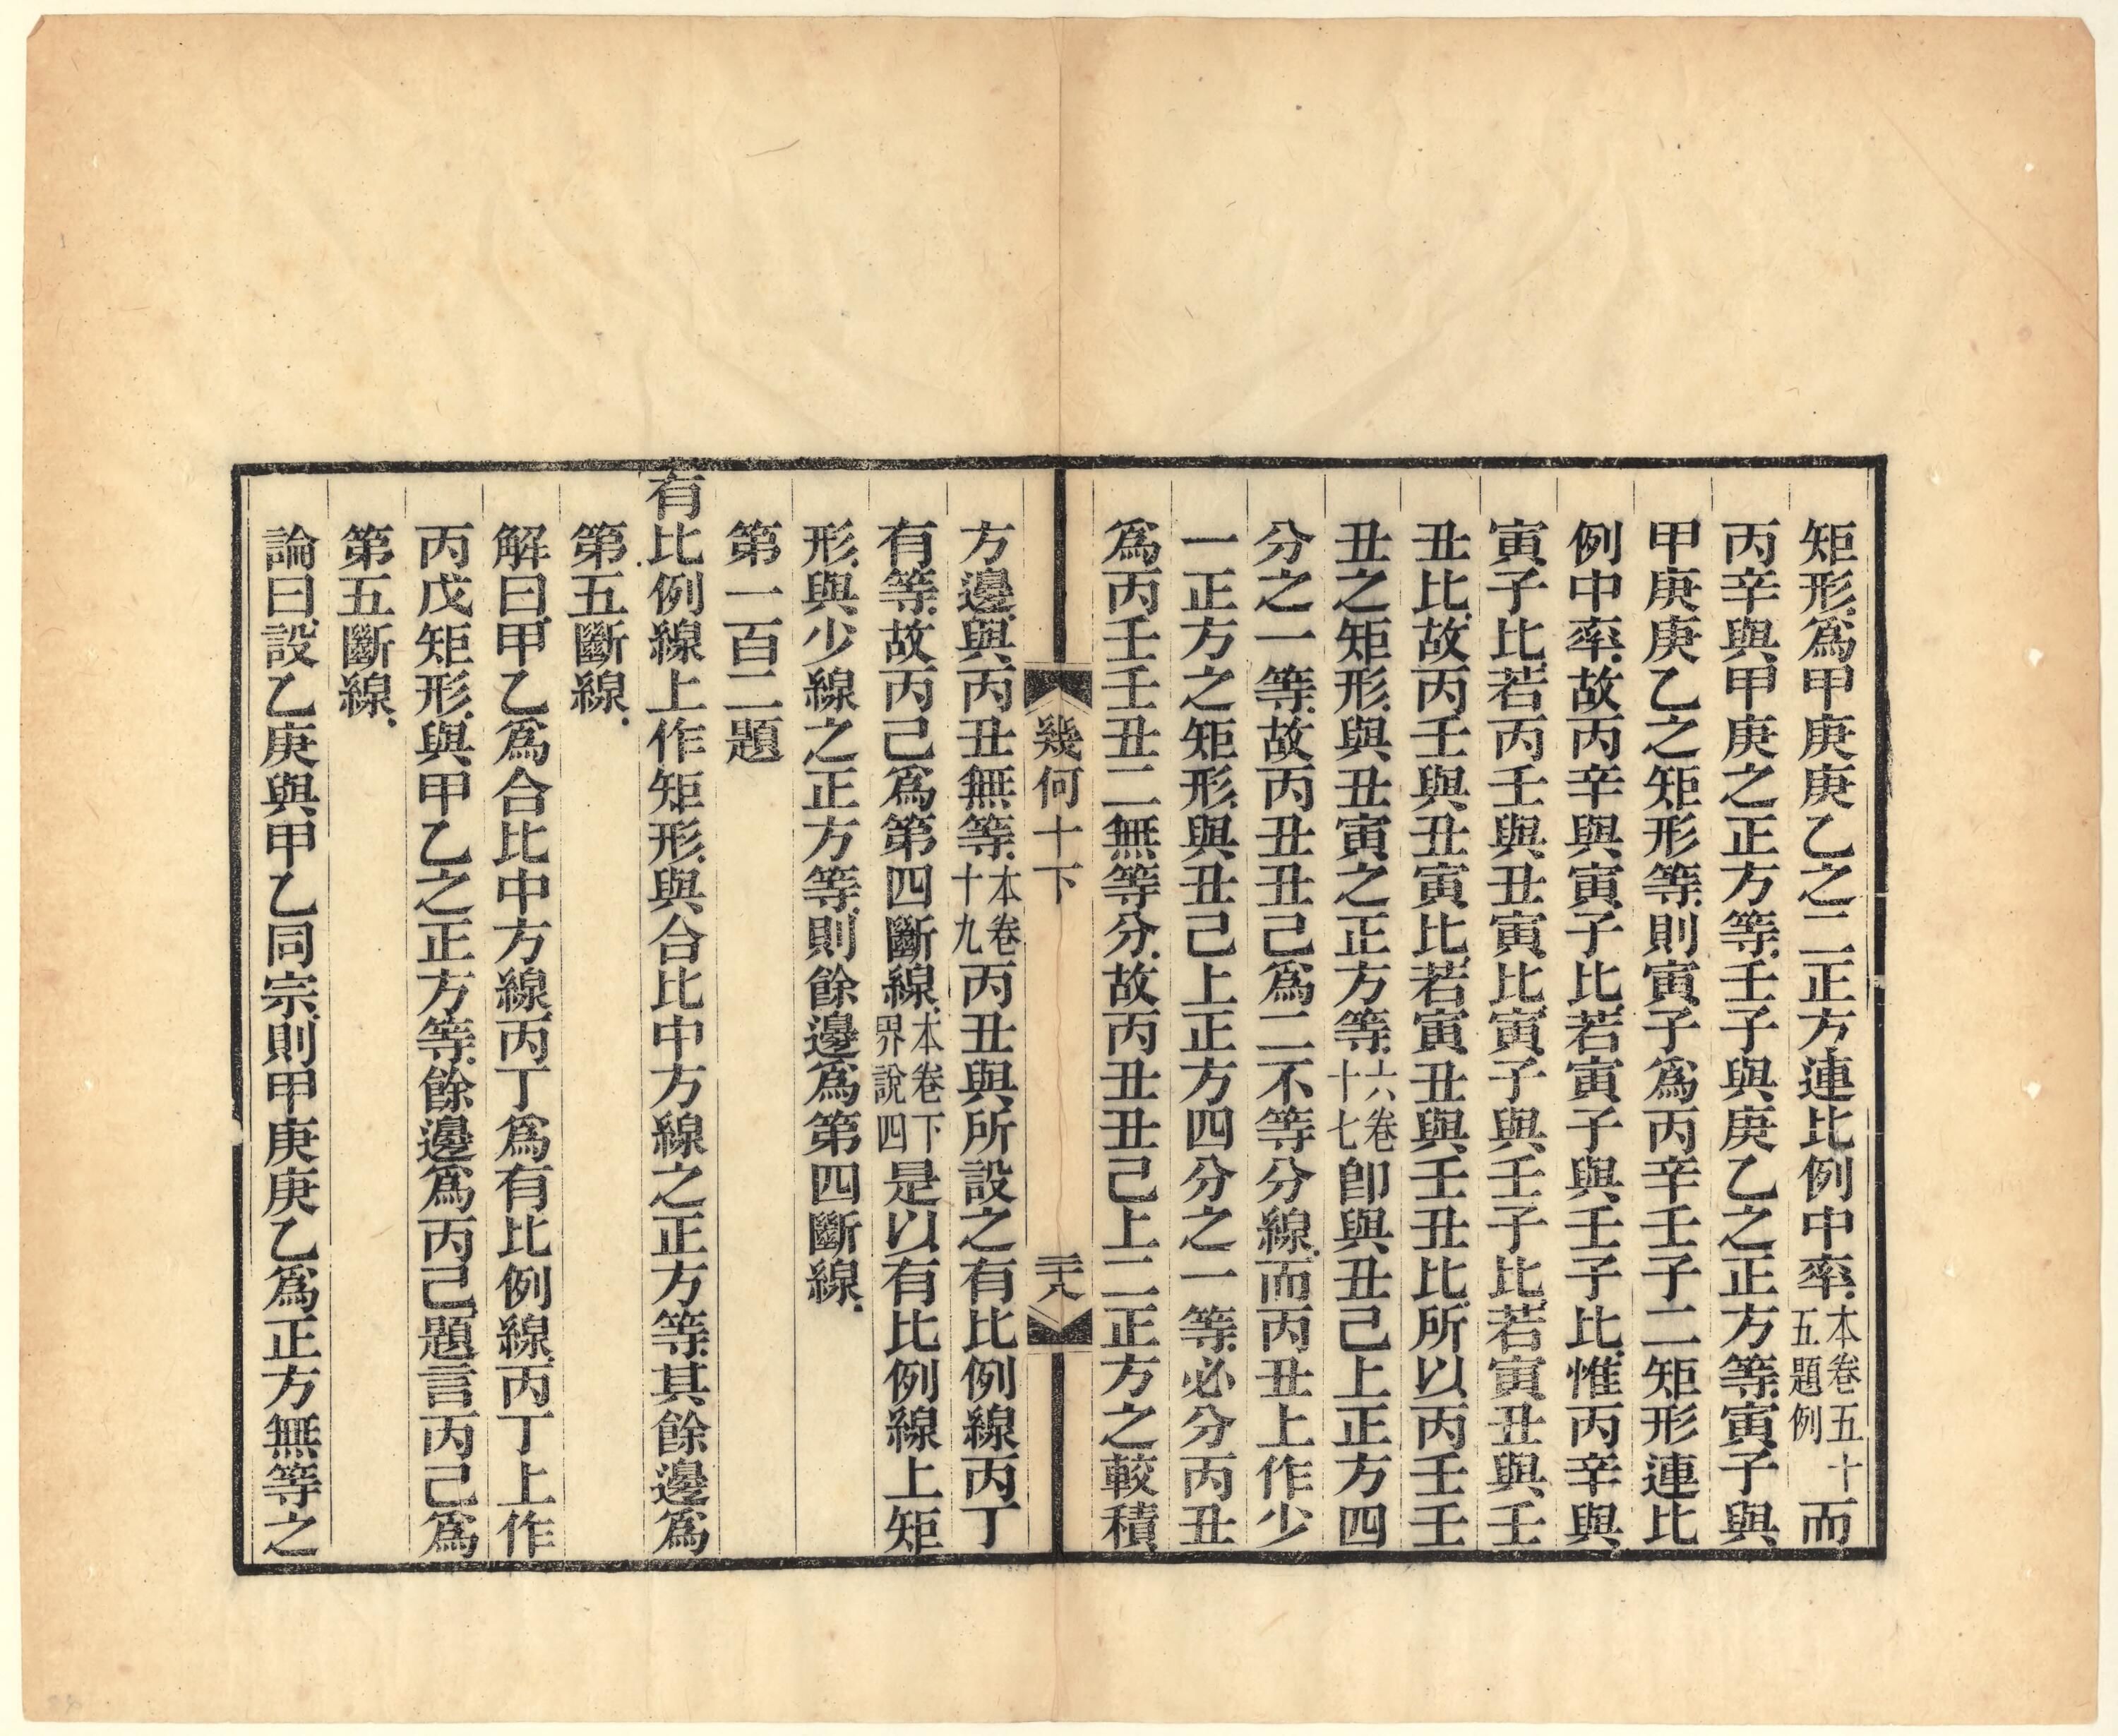 矩形、爲甲庚庚乙之二正方連比例中率、本卷五十五題例而
丙辛與甲庚之正方等、壬子與庚乙之正方等、寅子與
甲庚庚乙之矩形等、則寅子爲丙辛壬子二矩形連比
例中率、故丙辛與寅子比、若寅子與壬子比、惟丙辛與
寅子比、若丙壬與丑寅比、寅子與壬子比、若寅丑與壬
丑比、故丙壬與丑寅比、若寅丑與壬丑比、所以丙壬壬
丑之矩形、與丑寅之正方等、六卷十七卽與丑己上正方四
分之一等、故丙丑丑己爲二不等分線、而丙丑上作少
一正方之矩形、與丑己上正方四分之一等、必分丙丑
爲丙壬壬丑二無等分、故丙丑丑己上二正方之較積
幾何十下
二十八
方邊、與丙丑無等、本卷十九丙丑與所設之有比例線丙丁
有等、故丙己爲第四斷線、本卷下界說四是以有比例線上矩
形、與少線之正方等、則餘邊爲第四斷線、
第一百二題
有比例線上作矩形、與合比中方線之正方等、其餘邊爲
第五斷線、
解曰、甲乙爲合比中方線、丙丁爲有比例線、丙丁上作
丙戊矩形、與甲乙之正方等、餘邊爲丙己、題言丙己爲
第五斷線、
論曰、設乙庚與甲乙同宗、則甲庚庚乙爲正方無等之